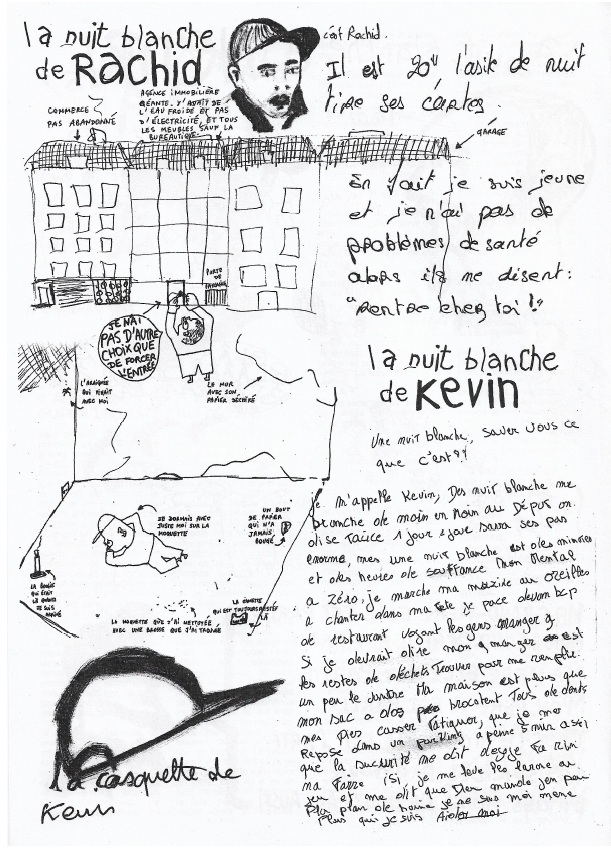 la nuit blanche
de Rachid
c'est Rachid.
Il est 20h, l'asile de nuit
tire ses cartes.
COMMERCE
PAS ABANDONNÉ
AGENCE IMMOBILIÈRE
GÉANTE. Y'AVAIT DE
L'EAU FROIDE ET PAS
D'ÉLECTRICITÉ, ET TOUS
LES MEUBLES SAUF LA
BUREAUTIQUE
GARAGE
En fait je suis jeune
et je n'ai pas de
problèmes de santé
alors ils me disent:
"rentre chez toi!"
PORTE DE
JE N'AI
PAS D'AUTRE
CHOIX QUE
DE FORCER
L'ENTRÉE
L'ARAIGNÉE
QUI ÉTAIT
AVEC MOI
LE MUR
AVEC SON
PAPIER DÉCHIRÉ
JE DORMAIS AVEC
JUSTE MOI SUR LA
MOQUETTE
UN BOUT
DE PAPIER
QUI N'A
JAMAIS
BOUGÉ
LA BOUGIE
QUI ÉTAIT
LÀ QUAND
JE SUIS
ARRIVÉ
LA MOQUETTE QUE J'AI NETTOYÉE
AVEC UNE BROSSE QUE J'AI TROUVÉE
QUI EST TOUJOURS RESTÉE
LÀ
la casquette de
Kevin
la nuit blanche
de Kevin
Une nuit blanche, saver vous ce
que c'est??
je m'appelle Kevin, Des nuit blanche me
de moin en moin au Dépur on
1 jour 1 jour sava ses pas
enorme, mes une nuit blanche est des minutes
et des heures de souffrance mon mental
a zéro, je marche ma muzike au oreilles
a chanter dans ma tete je pace devan bcp
de restaurant voyant les gens manger
Si je devrait dire mon manger est
les restes de déchets trouver pour me remplir
un peu le ventre Ma maison est plus que
mon sac a dos tous dedents
mes pies casser fatiguer, que je me
Repose dans un parking a peine 5 min assi
que la sucurité me dit degage
isi, je me leve les larme au
jeu et me dit que
plus plein de haine je me sens moi meme
plus qui je suis